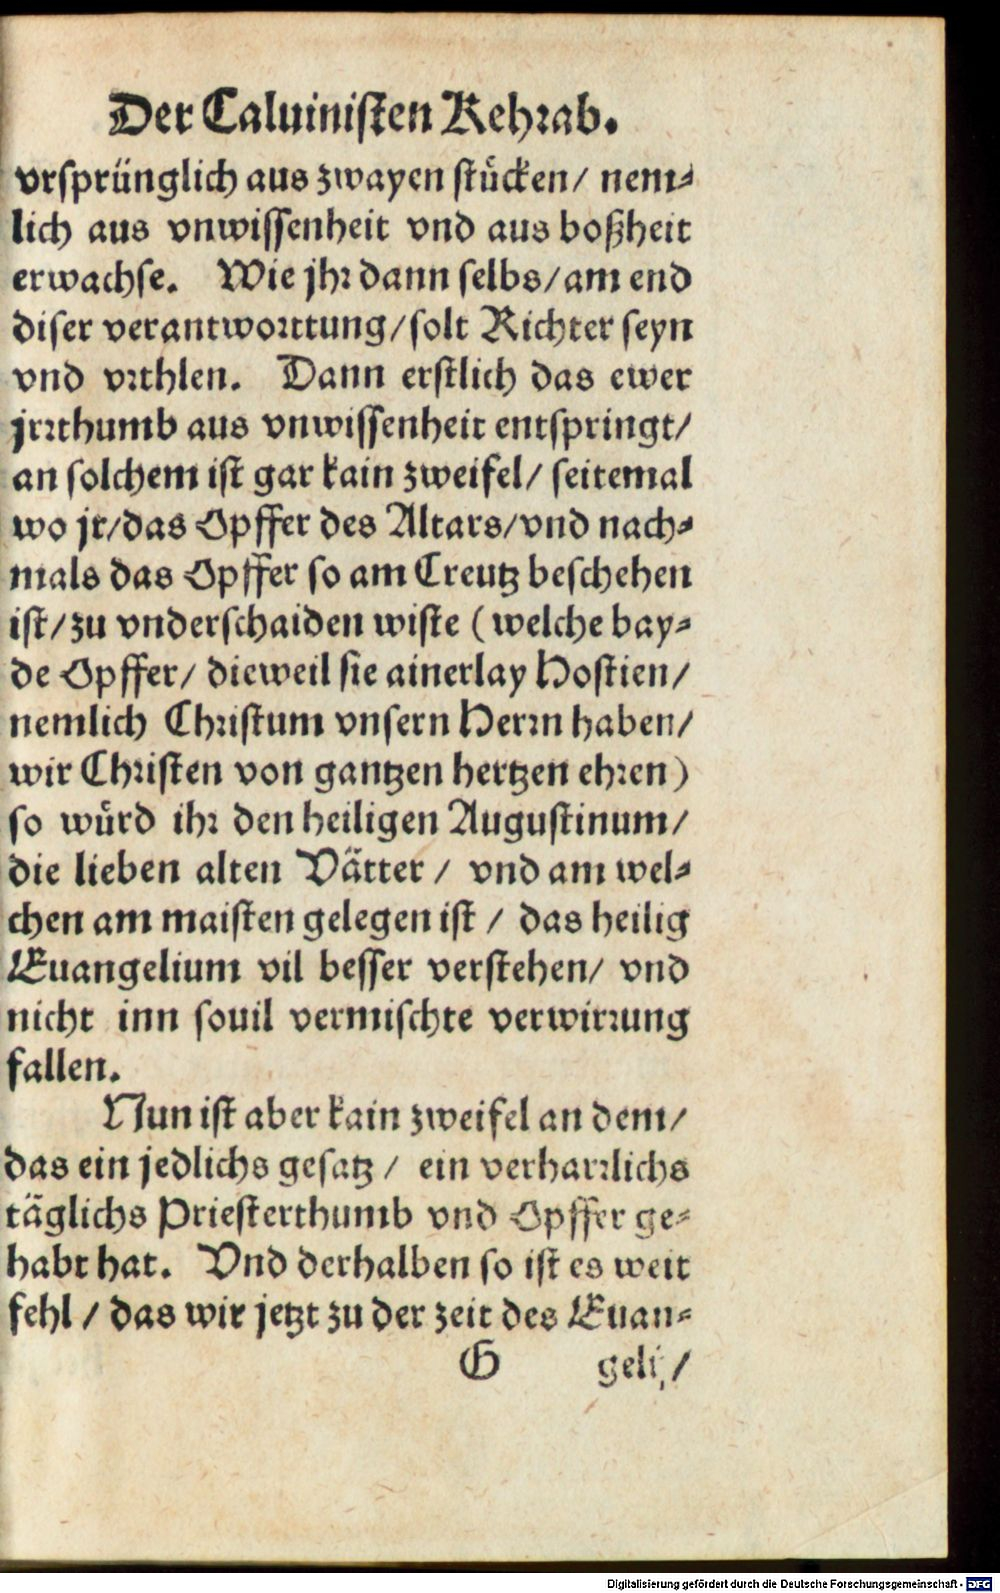 Der Caluinisten Kehrab.
vrsprünglich aus zwayen stücken/ nem-
lich aus vnwissenheit vnd aus boßheit
erwachse. Wie jhr dann selbs/am end
diser verantworttung/solt Richter seyn
vnd vrthlen. Dann erstlich das ewer
jrrthumb aus vnwissenheit entspringt/
an solchem ist gar kain zweifel/ seitemal
wo jr/das Opffer des Altars/vnd nach-
mals das Opffer so am Creutz beschehen
ist/zu vnderschaiden wiste (welche bay-
de Opffer/ dieweil sie ainerlay Hostien/
nemlich Christum vnsern Herrn haben/
wir Christen von gantzen hertzen ehren)
so würd ihr den heiligen Augustinum/
die lieben alten Vätter / vnd am wel-
chen am maisten gelegen ist / das heilig
Euangelium vil besser verstehen/ vnd
nicht inn souil vermischte verwirrung
fallen.
Nun ist aber kain zweifel an dem/
das ein jedlichs gesatz / ein verharrlichs
täglichs Priesterthumb vnd Opffer ge-
habt hat. Vnd derhalben so ist es weit
fehl / das wir jetzt zu der zeit des Euan-
G geli,/
Digitalisierung gefördert durch die Deutsche Forschungsgemeinschaft - DFG